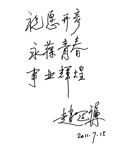 祝愿开彦
永葆青春
事业辉煌
2011.7.15